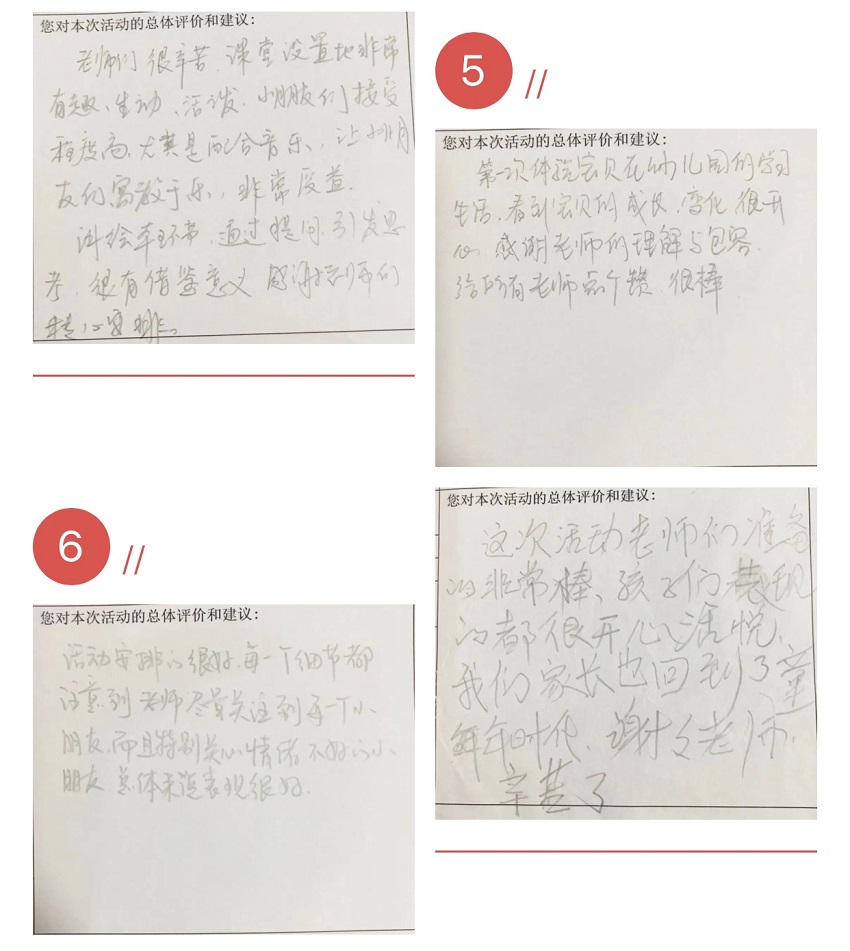 您对本次活动的总体评价和建议:
老师们很辛苦.课堂设置地非常
有趣、生动、活泼.小朋友们接受
程度高,尤其是配合音乐,让小朋
友们寓教于乐,非常受益.
讲绘本环节,通过提问.引发思
考.很有借鉴意义 感谢老师们
精心安排。
5 //
您对本次活动的总体评价和建议:
第一次体验宝贝在幼儿园的学习
生活.看到宝贝的成长.变化.很开
心.感谢老师的理解与包容.
给所有老师点个赞.很棒
6 //
您对本次活动的总体评价和建议:
活动安排的很好.每一个细节都
注意到 老师尽量关注到每一个小
朋友.而且特别关心情绪不好的小
朋友 总体来说表现很好.
您对本次活动的总体评价和建议:
这次活动老师们准备
的非常棒、孩子们表现
的都很开心活悦.
我们家长也回到了童
年时代.谢谢老师.
辛苦了